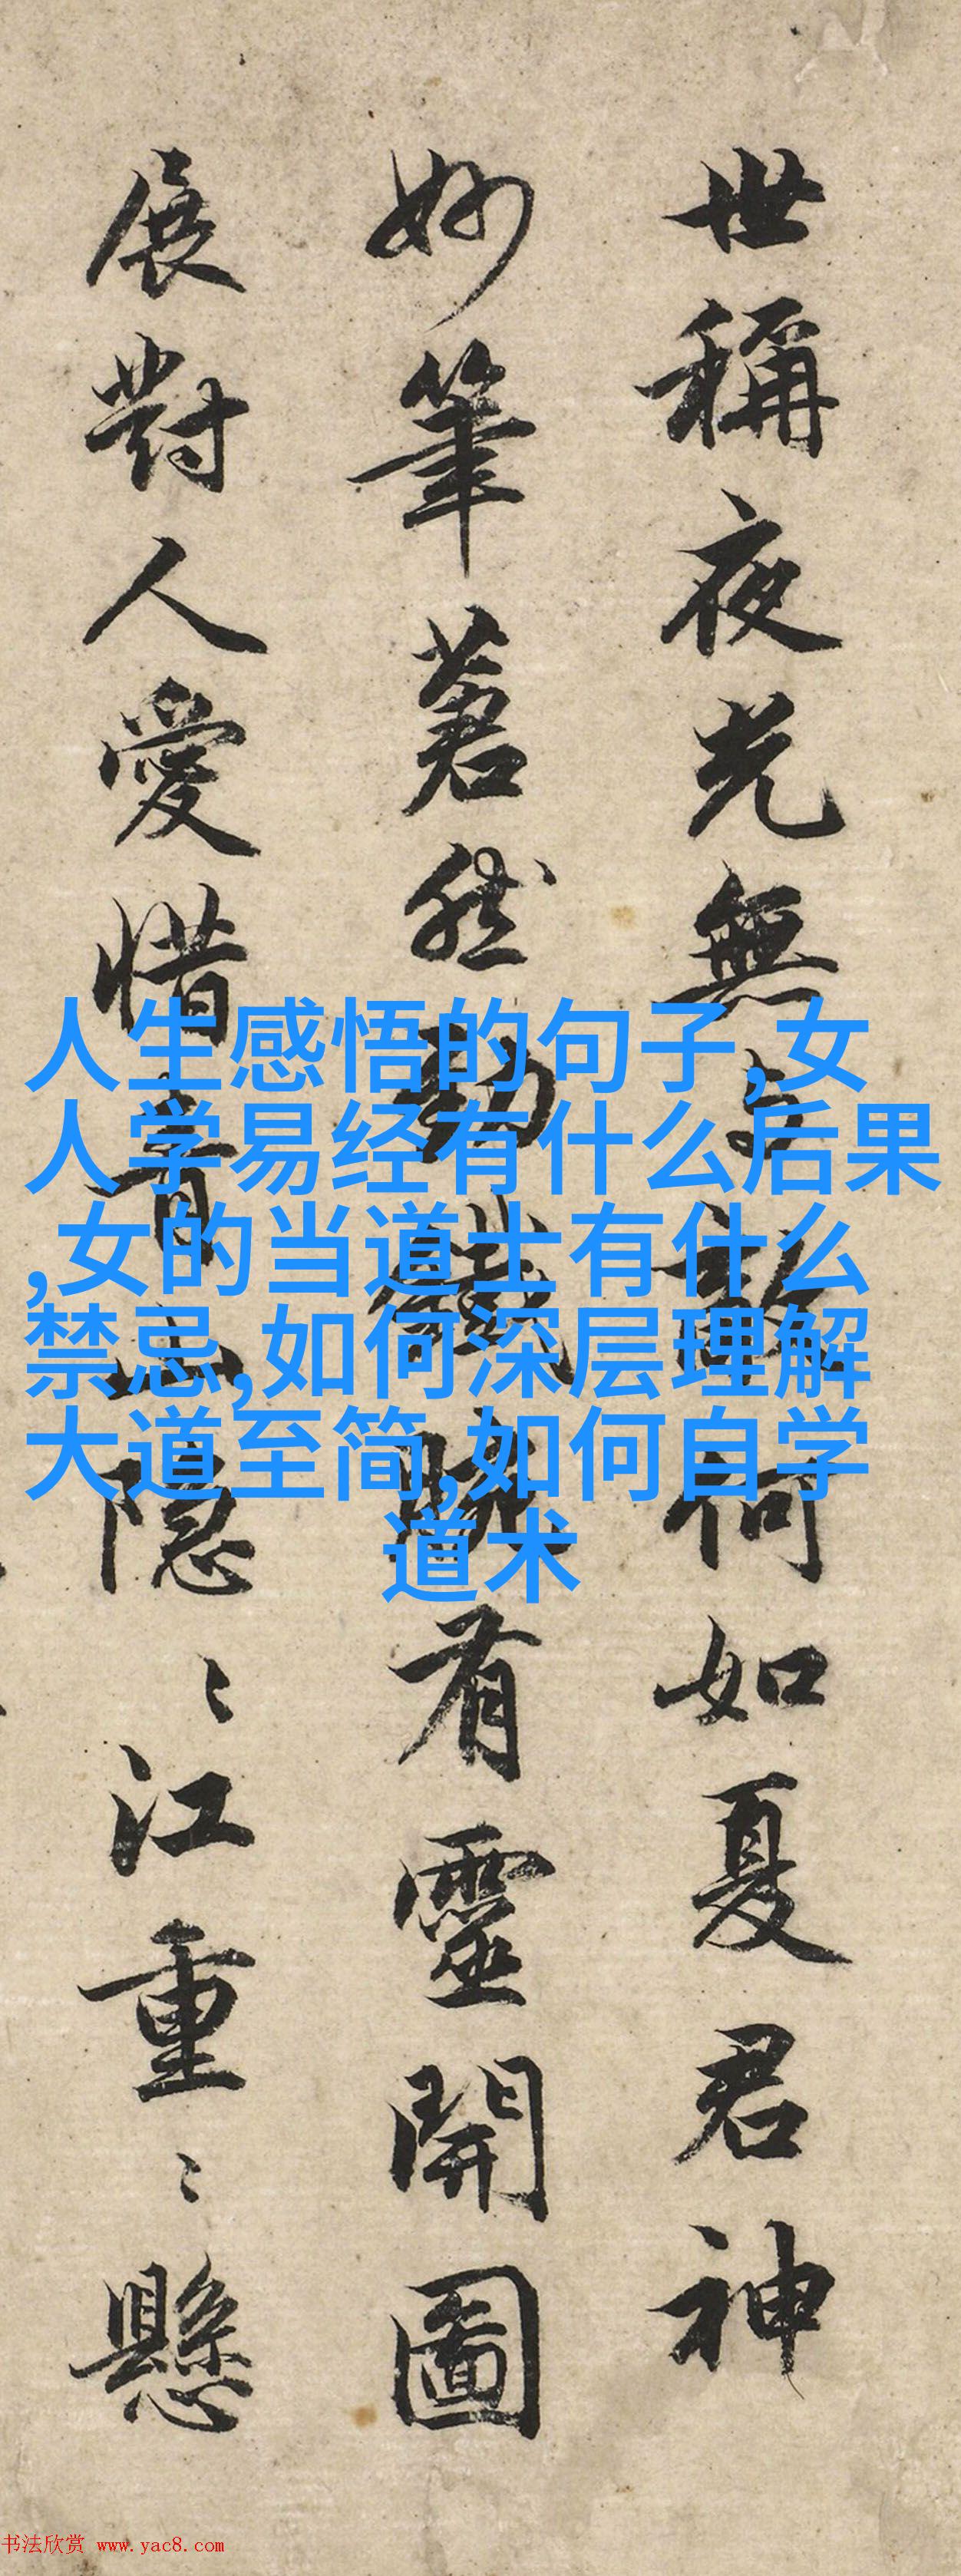 世稱夜光無与敵何如夏君神
妙筆蒼然勁鐵腕有靈開圖
展對人愛惜青山隱〻江重〻懸
人生感悟的句子,女
人学易经有什么后果
,女的当道士有什么
禁忌,如何深层理解
大道至简,如何自学
道术
书法欣赏 www.yac8.com